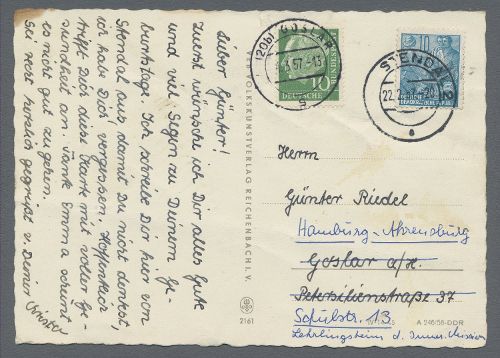 Lieber Günter!
Zuerst wünsche ich Dir alles Gute
und viel Segen zu Deinem Ge-
burtstage. Ich schreibe Dir hier von
Stendal aus damit Du nicht denkst,
ich habe Dich vergessen. Hoffentlich
trifft Dich diese Karte mit voller Ge-
sundheit an. Tante Emma scheint
es nicht gut zu gehen.
Sei recht herzlich gegrüßt v. Deiner
VOLKSKUNSTVERLAG REICHENBACH I. V.
2161
(20b) GOSLAR
57.-13
DEUTSCHE BUNDESPOST
10
STENDAL 2
22.2
a
DEUTSCHE
DEMOKRATISCHE REPUBLIK
Herrn
Günter Riedel
Hamburg-Ahrensburg
Goslar a/H.
Petersilienstraße 37
Schulstr. 13
Lehrlingsheim d. Inner. Mission
A 246/56-DDR